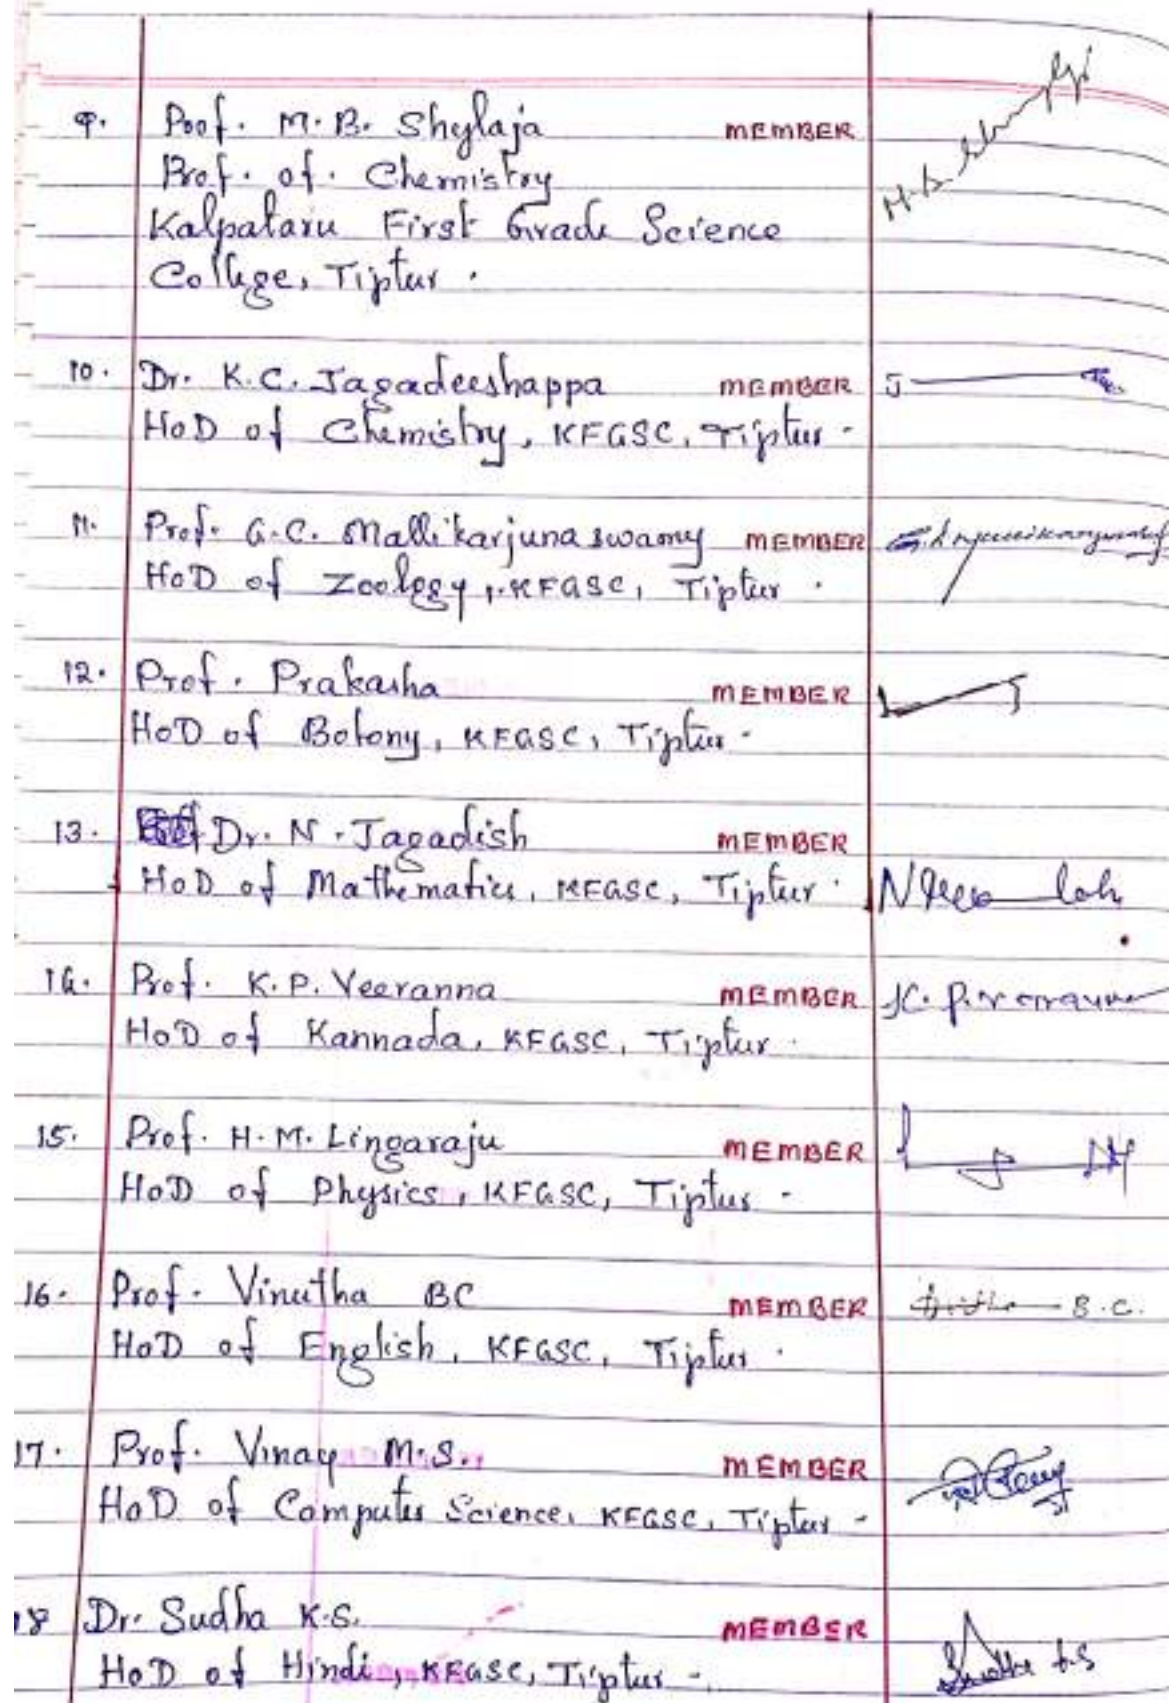 9. Prof. M.B. Shylaja MEMBER
Prof. of. Chemistry
Kalpataru First Grade Science
College, Tiptur.
10. Dr. K.C. Jagadeeshappa MEMBER
HoD of Chemistry, KFGSC, Tiptur.
11. Prof. G.C. Mallikarjunaswamy MEMBER
HoD of Zoology, KFGSC, Tiptur.
12. Prof. Prakasha MEMBER
HoD of Botony, KFGSC, Tiptur.
13. Dr. N. Jagadish MEMBER
HoD of Mathematics, KFGSC, Tiptur.
14. Prof. K.P. Veeranna MEMBER
HoD of Kannada, KFGSC, Tiptur.
15. Prof. H.M. Lingaraju MEMBER
HoD of Physics, KFGSC, Tiptur.
16. Prof. Vinutha BC MEMBER B.C.
HoD of English, KFGSC, Tiptur.
17. Prof. Vinay M.S. MEMBER
HoD of Computer Science, KFGSC, Tiptur.
18 Dr. Sudha K.S. MEMBER
HoD of Hindi, KFGSC, Tiptur.